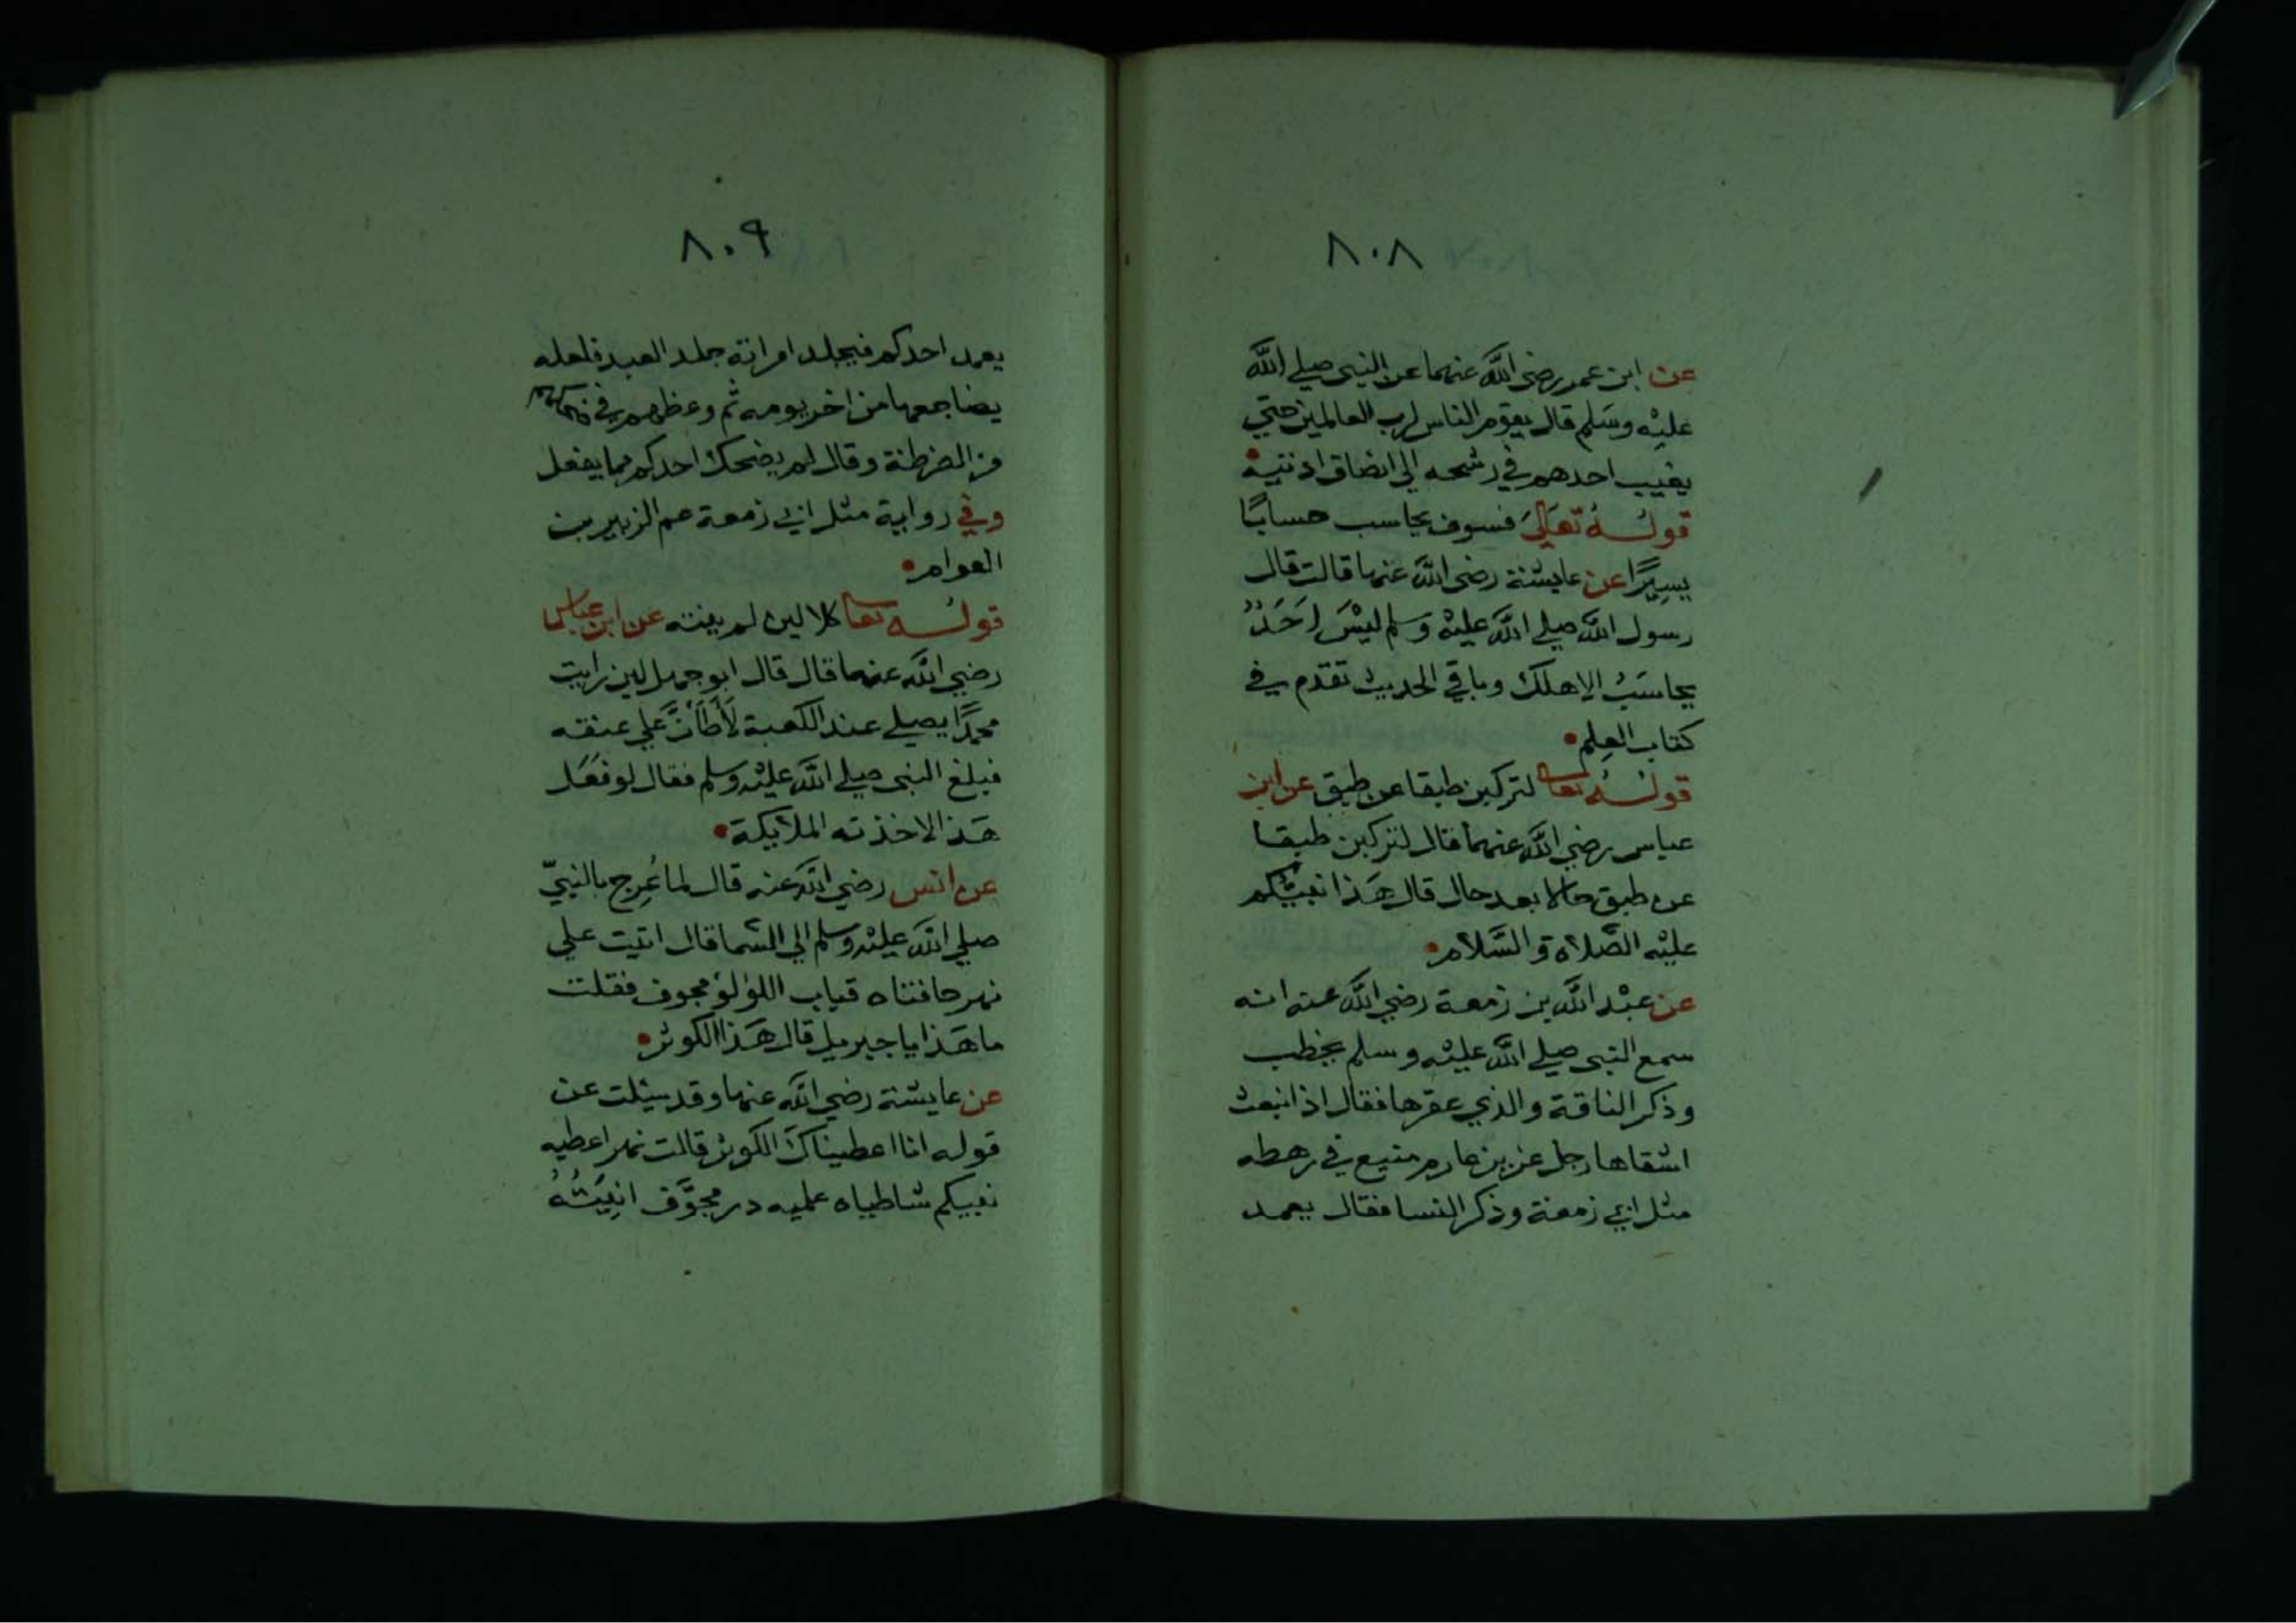 ٨٠٨
عن ابن عمر رضي الله عنهما عن النبي صلي الله
عليْه وسَلم قال يقوم الناس لرب العالمين حتي
يغيب احدهم في رشحه الي انصاف اذنيه
قولــهُ تعَاليَ فسوف يحاسب حسابًا
يسيرًا عن عايشة رضي الله عنها قالت قال
رسول الله صلي الله عليْه وسلم ليْسَ احَدٌ
يحاسَبُ الا هلك وباقي الحديث تقدم في
كتاب العِلم
قولــهُ تعا لتركبن طبقا عن طبق عن ابن
عباس رضي الله عنهما قال لتركبن طبقا
عن طبق حالا بعد حال قال هَذا نبيُّكم
عليْه الصَّلاة والسَّلام
عن عبْد الله بن زمعة رضي الله عنه انه
سمع النبي صلي الله عليْه وسلم يخطب
وذكر الناقة والذي عقرها فقال اذ انبعث
اشقاها رجل عزيز عارم منيع في رهطه
مثل ابي زمعة وذكر النسا فقال يعمد
٨٠٩
يعمد احدكم فيجلد امراته جلد العبد فلعله
يضاجعها من اخر يومه ثم وعظهم في ضحكهم
من الضرطة وقال لم يضحك احدكم مما يفعل
وفي رواية مثل ابي زمعة عم الزبير بن
العوام
قولــهُ تعا كلا لين لم ينته عن ابن عباس
رضي الله عنهما قال قال ابو جهل لين رايت
محمدًا يصلي عند الكعبة لَأَطَأَنَّ علي عنقه
فبلغ النبي صلي الله عليْه وسلم فقال لو فعَل
هَذا لاخذته الملايكة
عن انس رضي الله عنه قال لما عُرِج بالنبيّ
صلي الله عليْه وسلم الي السَّما قال اتيت علي
نهر حافتاه قباب اللولو مجوف فقلت
ما هَذا يا جبريل قال هَذا الكوثر
عن عايشة رضي الله عنها وقد سيلت عن
قوله انا اعطيناك الكوثر قالت نهر اعطيه
نبيكم شاطياه عليه در مجوَّف انِيَتُهُ